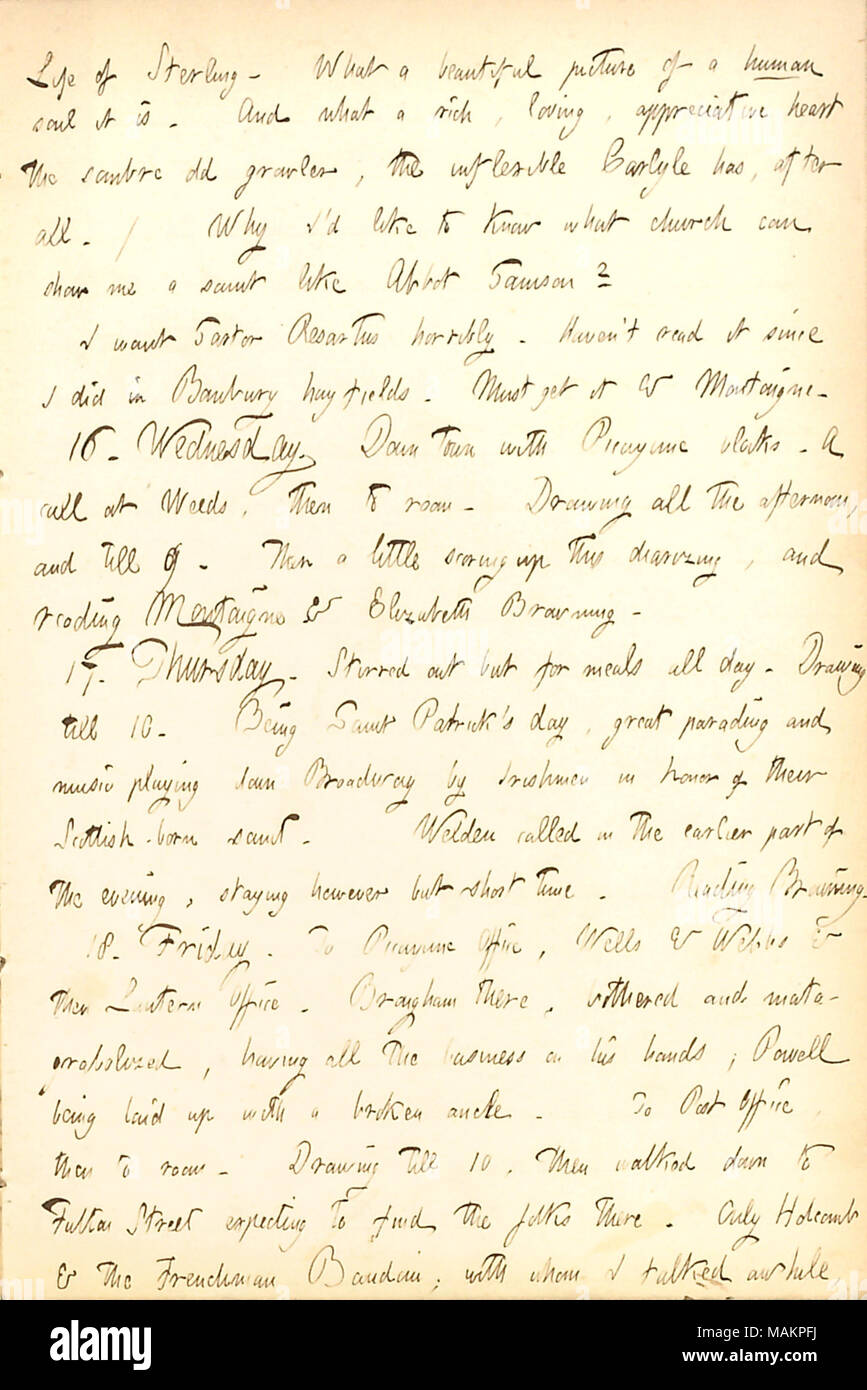 Life of Sterling - What a beautiful picture of a human
soul it is. And what a rich, loving, appreciative heart
the sombre old growler, the inflexible Carlyle has, after
all. / Why I'd like to know what church can
show me a saint like Abbot Samson?
I want Sartor Resartus horribly. Haven't read it since
I did in Banbury hayfields. Must get it & Montaigne.
16. Wednesday. Down town with Picayune blocks. A
call at Weeds, then to room. Drawing all the afternoon,
and till 9. Then a little scoring up this diarizing, and
reading Montaigne & Elizabeth Browning.
17. Thursday. Stirred out but for meals all day. Drawing
till 10. Being Saint Patrick's day, great parading and
music playing down Broadway by Irishmen in honor of their
Scottish-born saint. Welden called in the earlier part of
the evening, staying however but short time. Reading Browning.
18. Friday. To Picayune Office, Wells & Webbs &
then Lantern Office. Brougham there, bothered and mata-
grabolized, having all the business on his hands, Powell
being laid up with a broken ancle. To Post Office,
then to room. Drawing till 10, then walked down to
Fulton Street expecting to find the folks there. Only Holcomb
& the Frenchman Baudoin, with whom I talked awhile,
alamy
Image ID: MAKPFJ
www.alamy.com